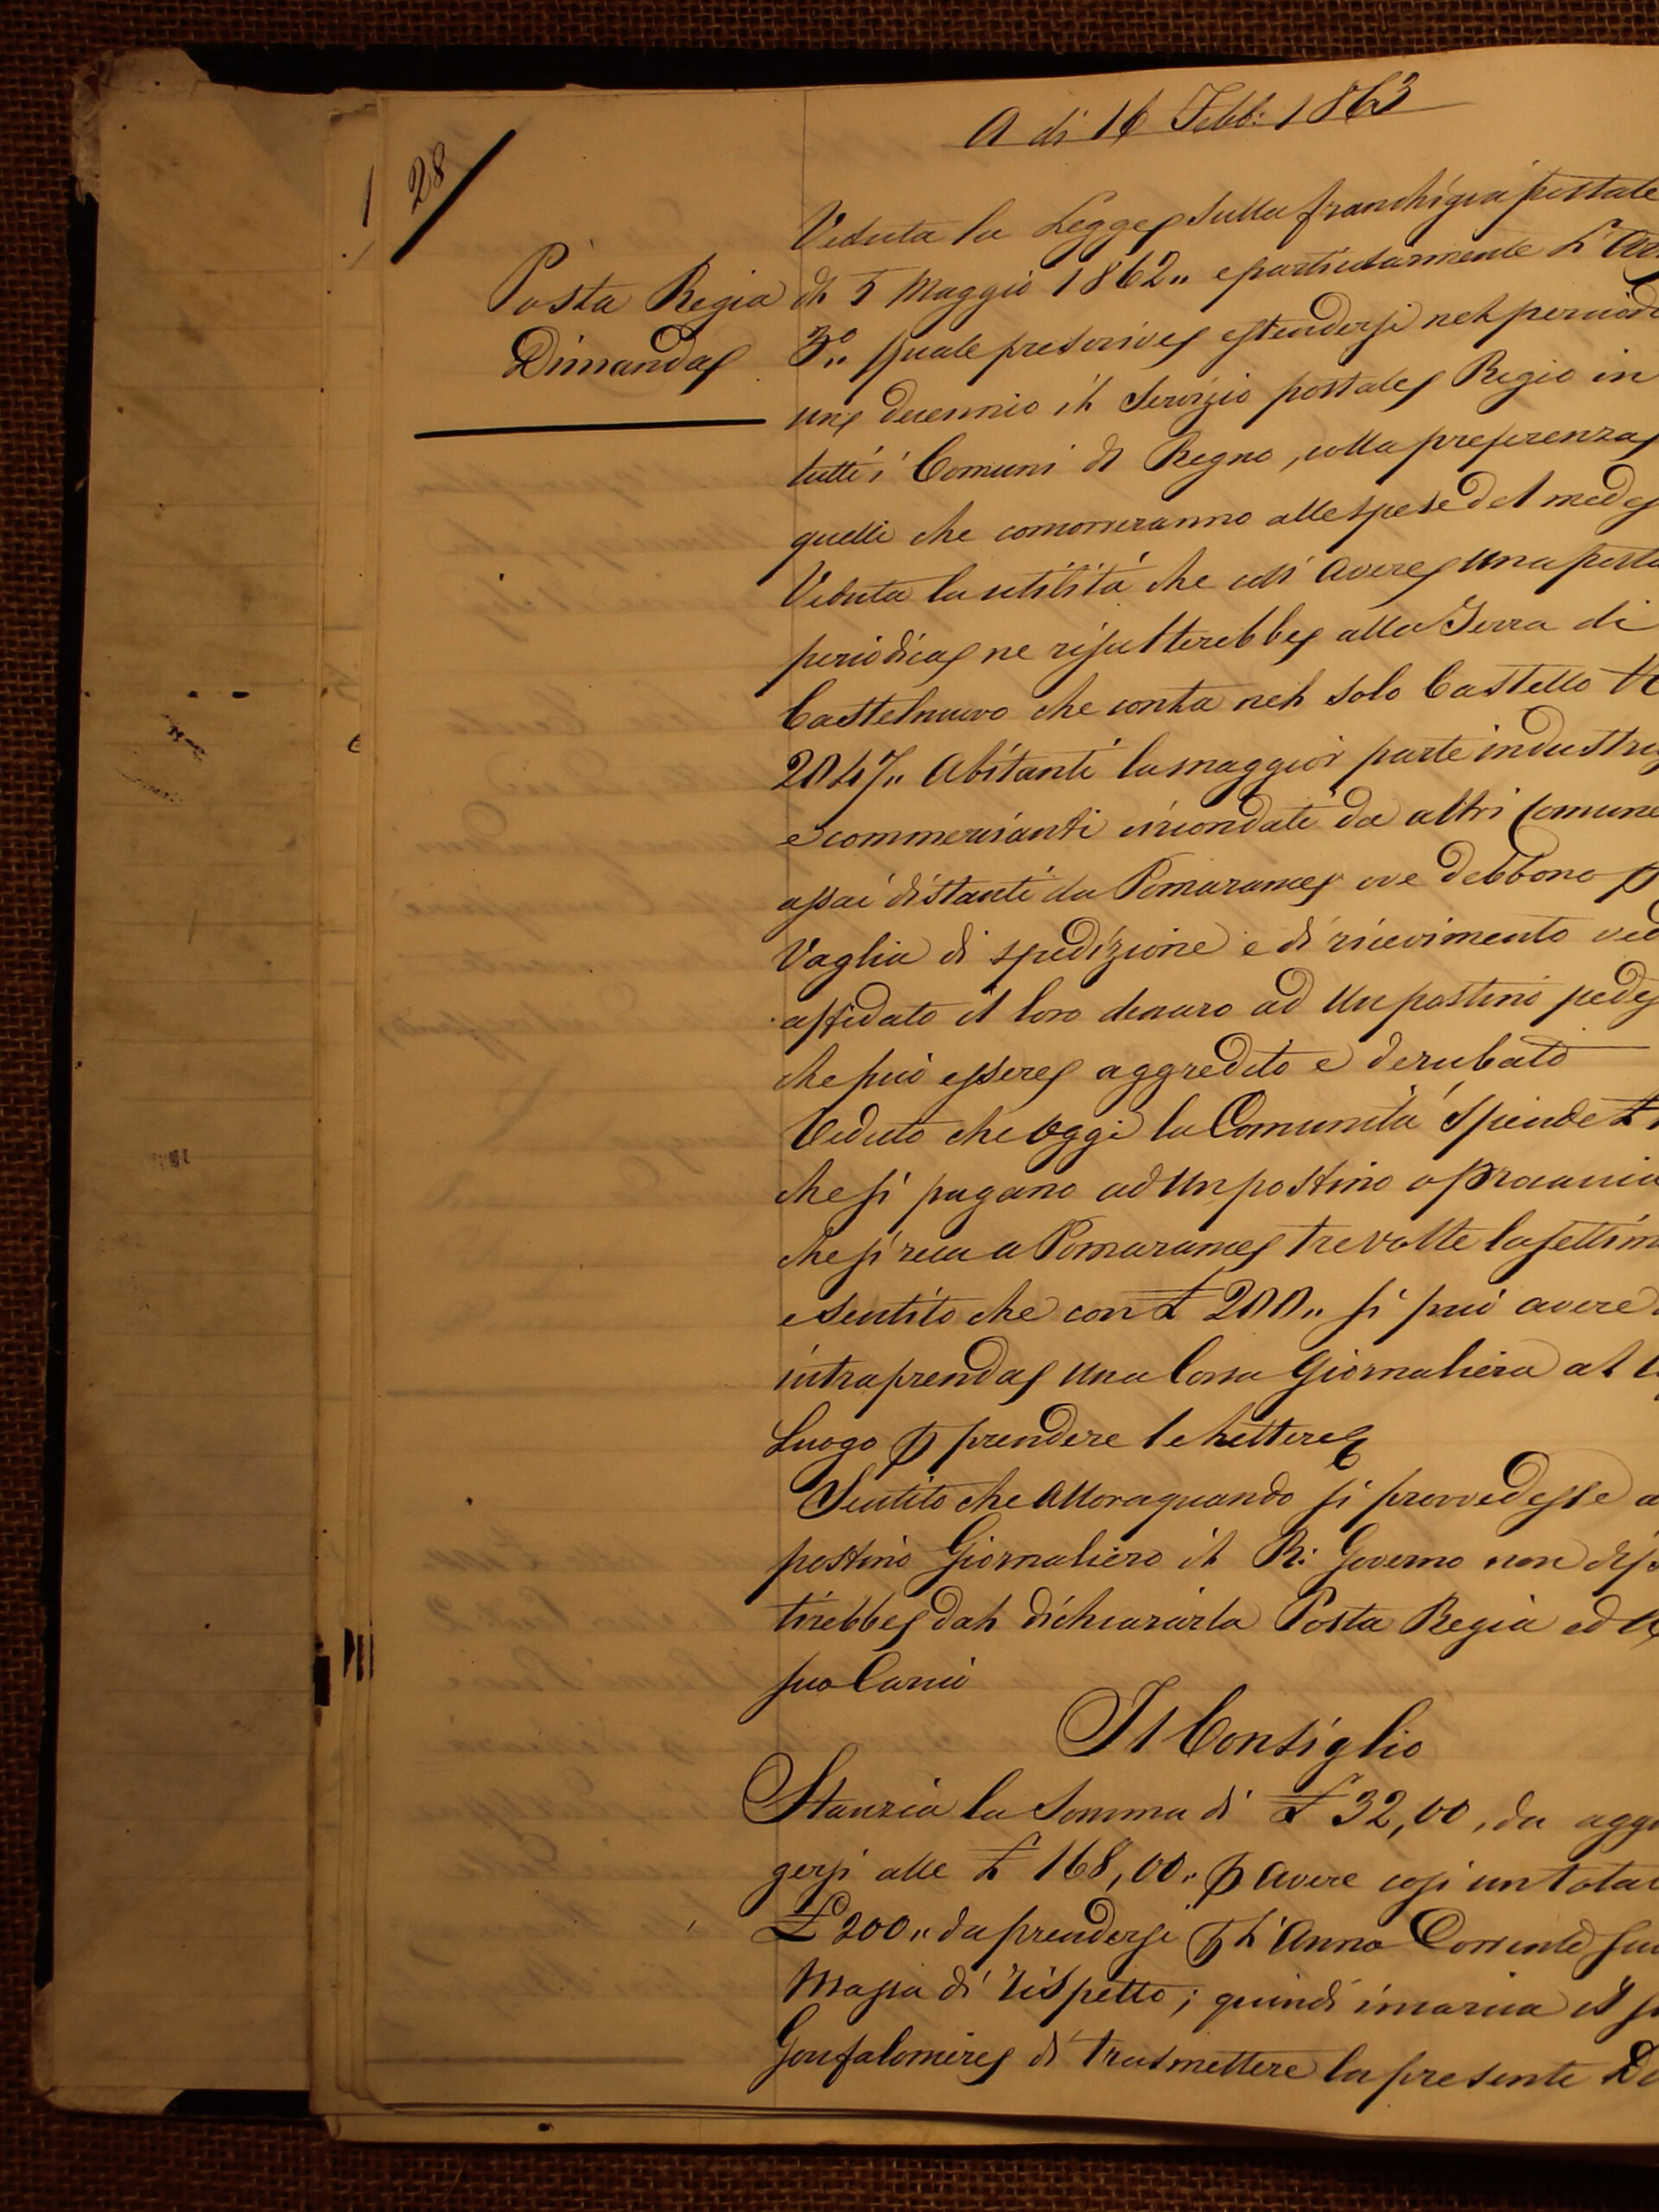 A di 16 Febb: 1863
28
Posta Regia
Dimanda
Veduta la Legge sulla franchigia postale
di 5 Maggio 1862" e particolarmente l'Art
3°" quale prescrive estendersi nel periodo
un decennio il Servizio postale Regio in
tutti i Comuni di Regno, colla preferenza
quelli che concorreranno alle spese del medes
Veduta la utilità che coll'avere una posta
periodica ne risulterebbe alla Terra di
Castelnuovo che conta nel solo Castello
2047" Abitanti la maggior parte industri
e commercianti circondati da altri Comune
assai distanti da Pomarance ove debbono p
Vaglia di spedizione e di ricevimento ved
affidato il loro denaro ad un postino pedes
che può essere aggredito e derubato
Veduto che oggi la Comunità spende £
che si pagano ad un postino o procaccia
che si reca a Pomarance tre volte la settim
e sentito che con £ 200" si può avere
intraprenda una Corsa Giornaliera al
Luogo p prendere le Lettere
Sentito che allora quando si provvedesse a
postino Giornaliero il R: Governo non dis
tirebbe dal dichiararla Posta Regia ed
suo Carico
Il Consiglio
Stanzia la Somma di £ 32,00, da aggi
gersi alle £ 168,00" p avere così un total
£ 200" da prendersi p l'Anno Corrente su
Massa di rispetto; quindi incarica il
Gonfaloniere di trasmettere la presente De